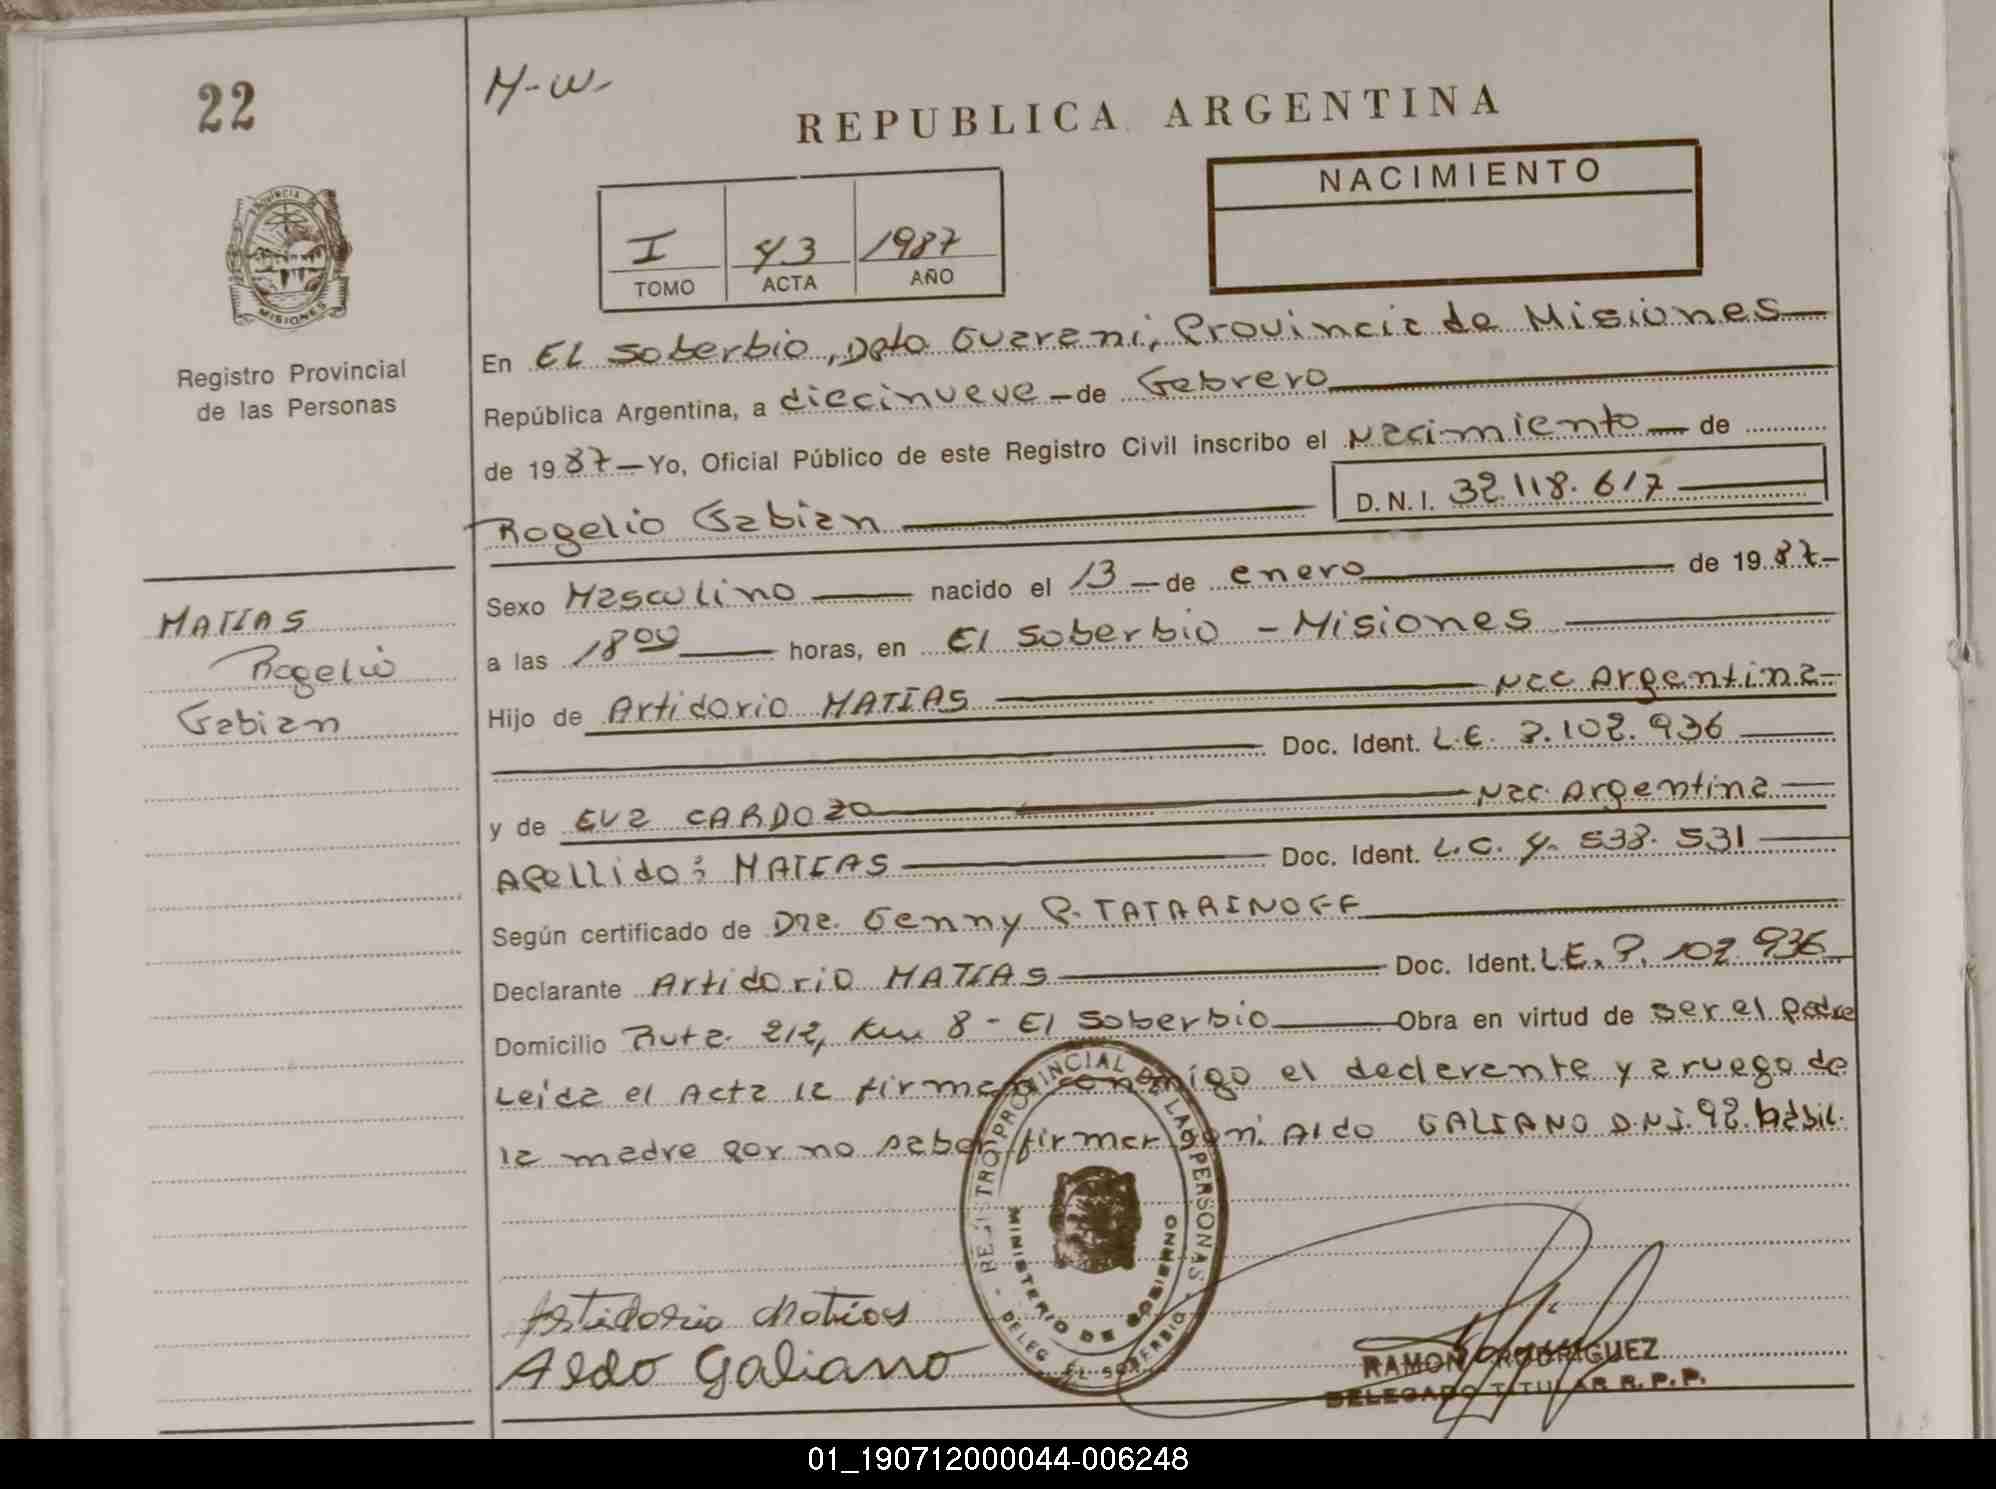 22
M-W-
REPUBLICA ARGENTINA
NACIMIENTO
I 43 1987
TOMO ACTA AÑO
Provincia de
MISIONES
Registro Provincial
de las Personas
En EL Soberbio, Dpto Guarani, Provincia de Misiones
República Argentina, a diecinueve - de Febrero
de 1987 - Yo, Oficial Público de este Registro Civil inscribo el Nacimiento de
Rogelio Fabian D.N.I. 32.118.617
Sexo Masculino nacido el 13 - de enero de 1987-
a las 18 00 horas, en El Soberbio - Misiones
Hijo de Artidorio MATIAS Nac Argentina
Doc. Ident. L.E. 102.936
y de Eva CARDOZO Nac. Argentina
Apellido: MATIAS Doc. Ident. L.C. 4. 538. 531
Según certificado de Dra. Genny P. TATARINOFF
Declarante Artidorio MATIAS Doc. Ident. L.E. 102.936
Domicilio Ruta. 212, Km 8 - El Soberbio Obra en virtud de ser el padre
Leida el Acta la firman conmigo el declarante y a ruego de
la madre por no saber firmar Aldo GALIANO D.N.I. 92. hábil.
MATIAS
Rogelio
Fabian
REGISTRO PROVINCIAL DE LAS PERSONAS
MINISTERIO DE GOBIERNO
DELEG. EL SOBERBIO
Artidorio Matias
Aldo Galiano
RAMON RODRIGUEZ
DELEGADO TITULAR R.P.P.
01_190712000044-006248